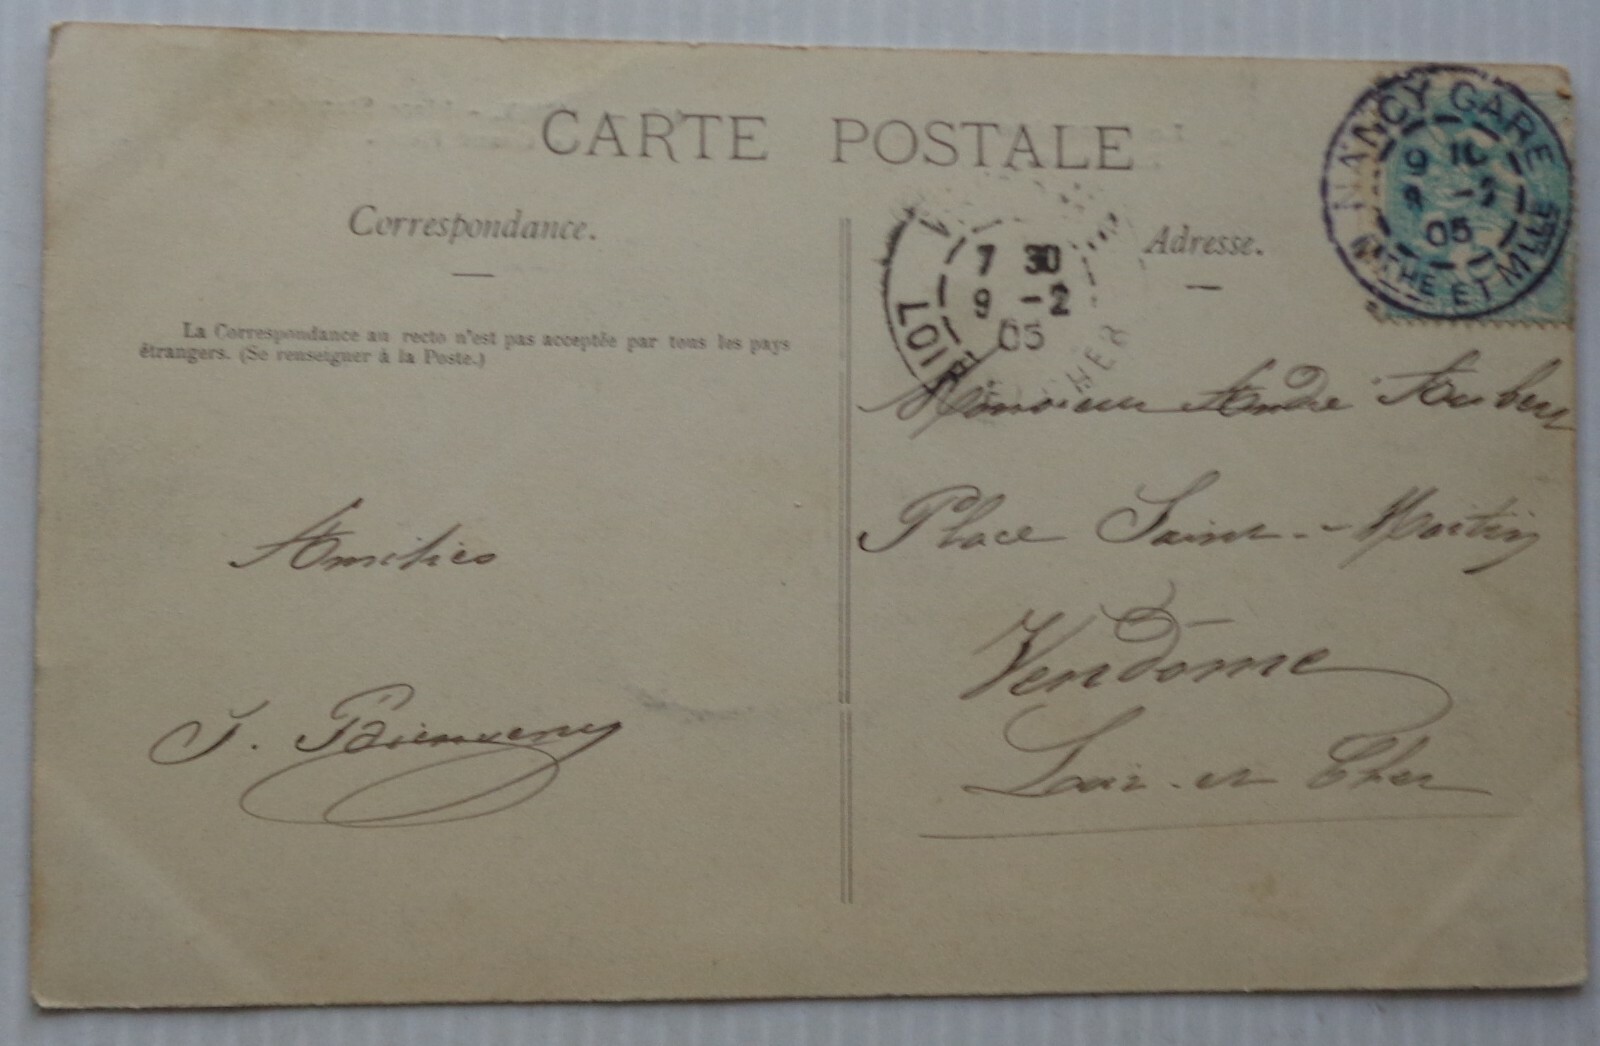 CARTE POSTALE
Correspondance.
La Correspondance au recto n'est pas acceptée par tous les pays
étrangers. (Se renseigner à la Poste.)
Amitiés
J. Bienvenu
Adresse.
NANCY GARE
9 10
9 -2
05
MTHE ET MLLE
7 30
9 -2
05
LOIR CHER
Monsieur André Aubert
Place Saint-Martin
Vendôme
Loir-et Cher